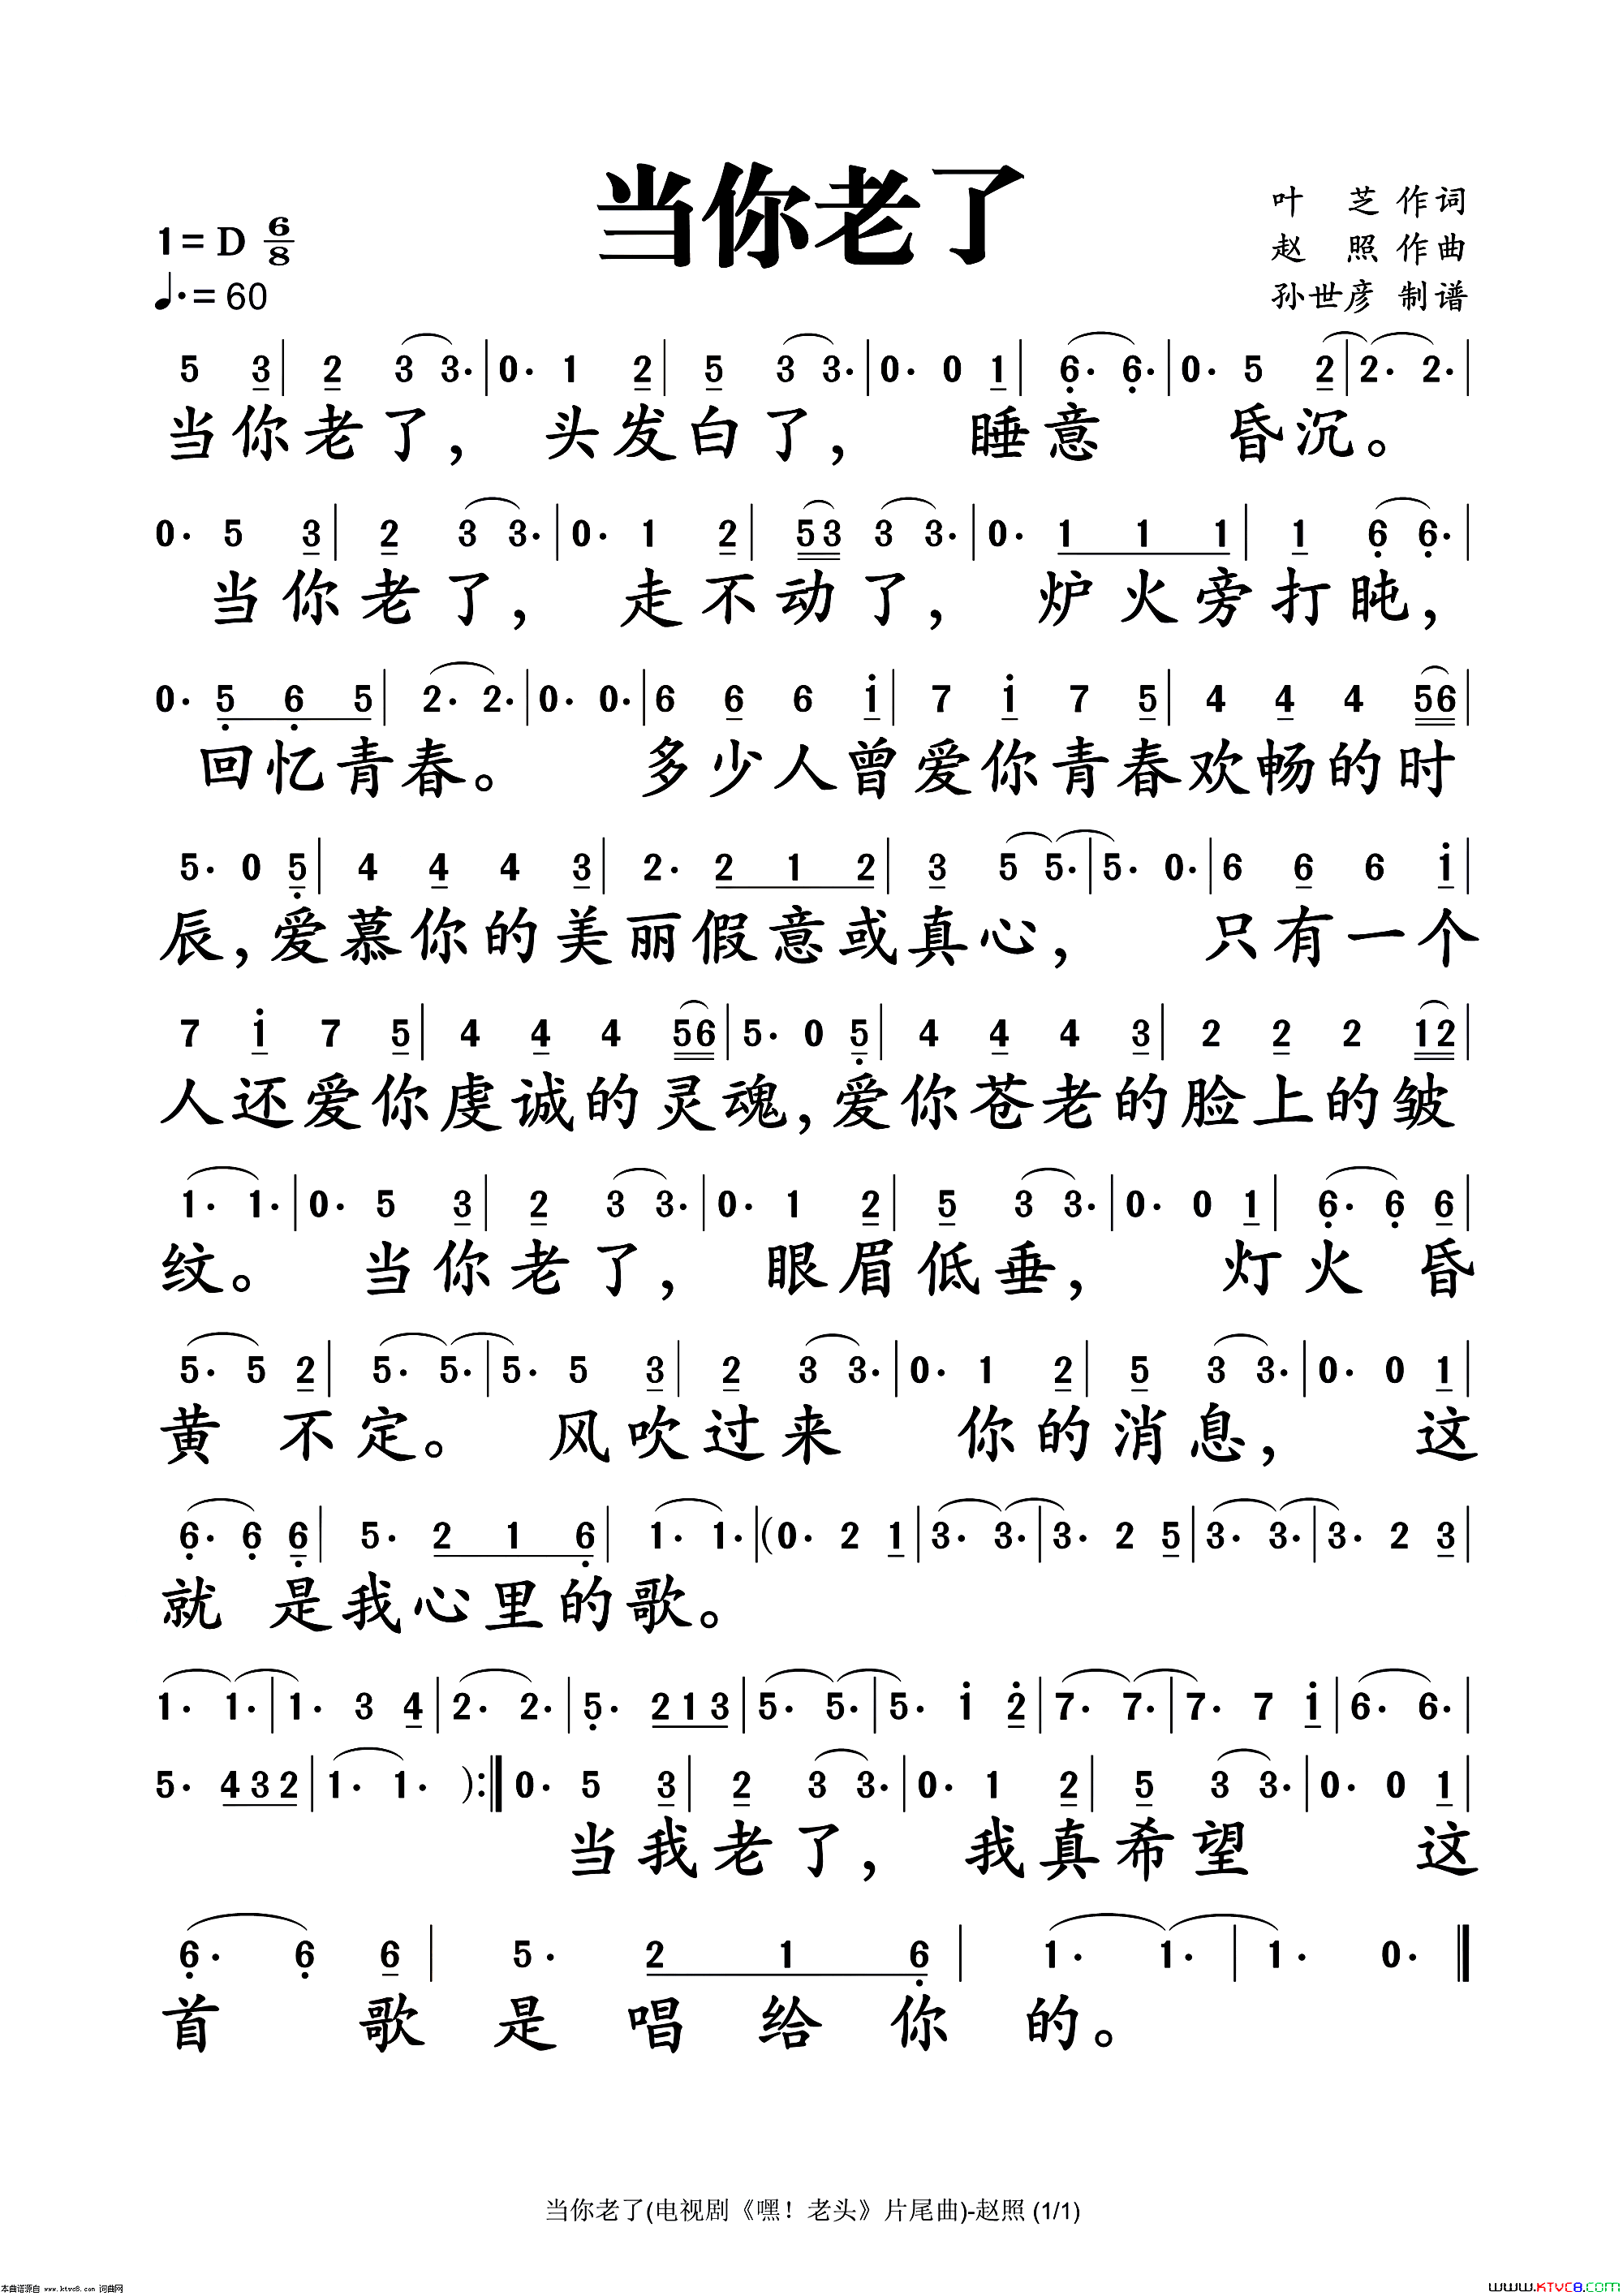 当你老了
叶 芝 作词
1=D 6/8
赵 照 作曲
♩.=60
孙世彦 制谱
5 3| 2 3 3.|0. 1 2| 5 3 3.|0. 0 1| 6. 6.|0. 5 2|2. 2.|
当你老了, 头发白了, 睡意 昏沉。
0. 5 3| 2 3 3.|0. 1 2| 53 3 3.|0. 1 1 1| 1 6 6.|
当你老了, 走不动了, 炉火旁打盹,
0. 5 6 5| 2. 2.|0. 0.|6 6 6 i| 7 i 7 5| 4 4 4 56|
回忆青春。 多少人曾爱你青春欢畅的时
5. 0 5| 4 4 4 3| 2. 2 1 2| 3 5 5.|5. 0.|6 6 6 i|
辰,爱慕你的美丽假意或真心, 只有一个
7 i 7 5| 4 4 4 56|5. 0 5| 4 4 4 3| 2 2 2 12|
人还爱你虔诚的灵魂,爱你苍老的脸上的皱
1. 1.|0. 5 3| 2 3 3.|0. 1 2| 5 3 3.|0. 0 1| 6. 6 6|
纹。 当你老了, 眼眉低垂, 灯火 昏
5. 5 2| 5. 5.|5. 5 3| 2 3 3.|0. 1 2| 5 3 3.|0. 0 1|
黄 不定。 风吹过来 你的消息, 这
6. 6 6| 5. 2 1 6| 1. 1.|(0. 2 1|3. 3.|3. 2 5|3. 3.|3. 2 3|
就 是我心里的歌。
1. 1.|1. 3 4|2. 2.|5. 213|5. 5.|5. i 2|7. 7.|7. 7 i|6. 6.|
5. 432|1. 1. ):‖0. 5 3| 2 3 3.|0. 1 2| 5 3 3.|0. 0 1|
当我老了, 我真希望 这
6. 6 6| 5. 2 1 6| 1. 1.|1. 0.‖
首 歌是唱给你的。
当你老了(电视剧《嘿！老头》片尾曲)-赵照 (1/1)
本曲谱源自 www.ktvc8.com 词曲网
WWW.KTVC8.COM